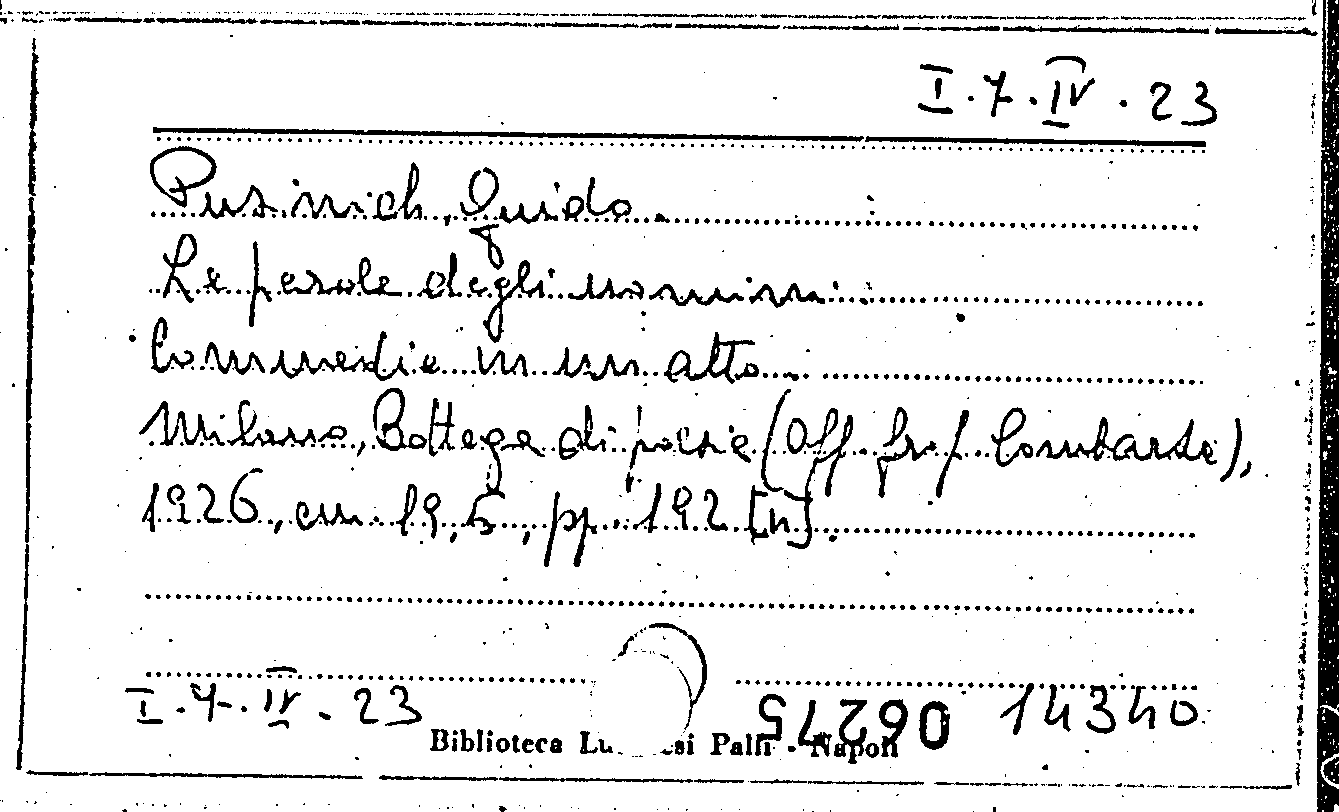 I.7.IV.23
Pusinich, Guido.
Le parole degli uomini.
Commedie in un atto.
Milano, Bottega di poesia (Off. graf. Lombarda),
1926, cm. 19,5, pp. 192 [n].
I.7.IV.23
06275 14340
Biblioteca Lu si Palli - Napoli